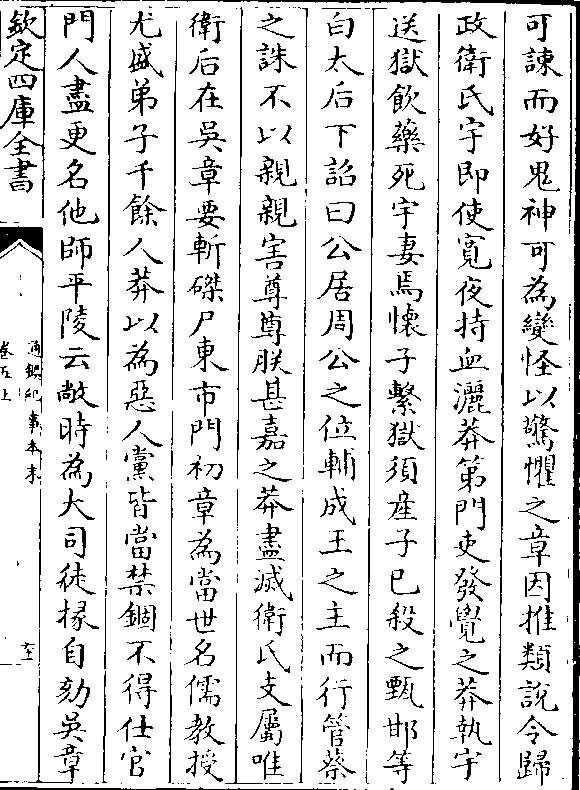 可諫而好鬼神可為變怪以驚懼之章因推類說令歸
政衛氏宇即使寛夜持血灑莽第門吏發覺之莽執宇
送獄飲藥死宇妻焉懷子繫獄須產子已殺之甄邯等
白太后下詔曰公居周公之位輔成王之主而行管蔡
之誅不以親親害尊尊朕甚嘉之莽盡滅衛氏支屬唯
衛后在吳章要斬磔尸東市門初章為當世名儒教授
尤盛弟子千餘人莽以為惡人黨皆當禁錮不得仕宦
門人盡更名他師平陵云敞時為大司徒掾自劾吳章
欽定四庫全書
通鑑紀事本末
卷五上